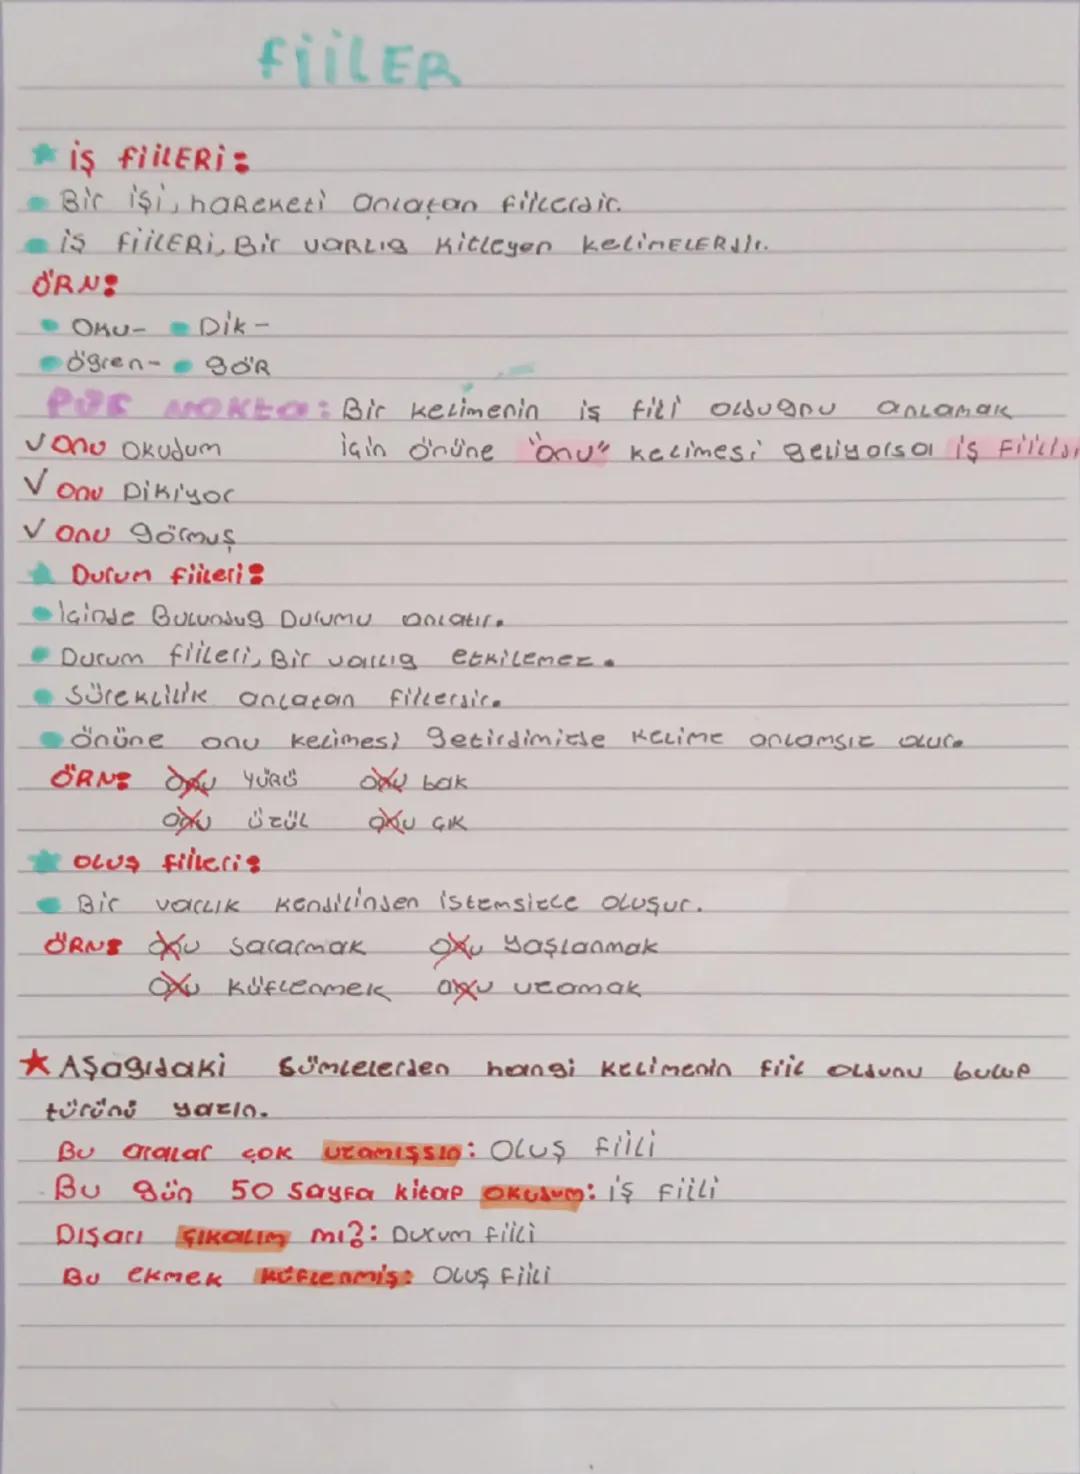 FiiLER
iş fiilERi:
Bir işi, haReketi anlatan fiillerdir.
iş fiilERi, Bir vaRLIğ kitleyen kelimELERdir.
ÖRN:
Oku- Dik-
öğren- göR
PÜF NOKtO: Bir kelimenin iş fiili olduğnu anlamak
√ Onu Okudum için önüne "onu" kelimesi geliyorsa iş Fiilidir
√ Onu Dikiyor
√ Onu görmuş
Durum fiileri:
İçinde Bulunduğ Durumu anlatır.
Durum fiileri, Bir varlığ etkilemez.
Süreklilik anlatan fiillerdir.
önüne onu kelimesi getirdimizde kelime anlamsız olur.
ÖRN: onu YÜRÜ onu bak
onu üzül onu çık
OLUŞ fiilleri:
Bir varlık kendilinden istemsizce oluşur.
ÖRN: onu Sararmak onu Yaşlanmak
onu küflenmek onu uzamak
AŞağıdaki Sümlelerden hangi kelimenin fiil oldunu bulup
türünü yazın.
Bu aralar çok uzamışsın: OLUŞ fiili
Bu gün 50 Sayfa kitap okudum: iş fiili
Dışarı çıkalım mı?: Durum fiili
Bu ekmek küflenmiş: OLUŞ Fiili